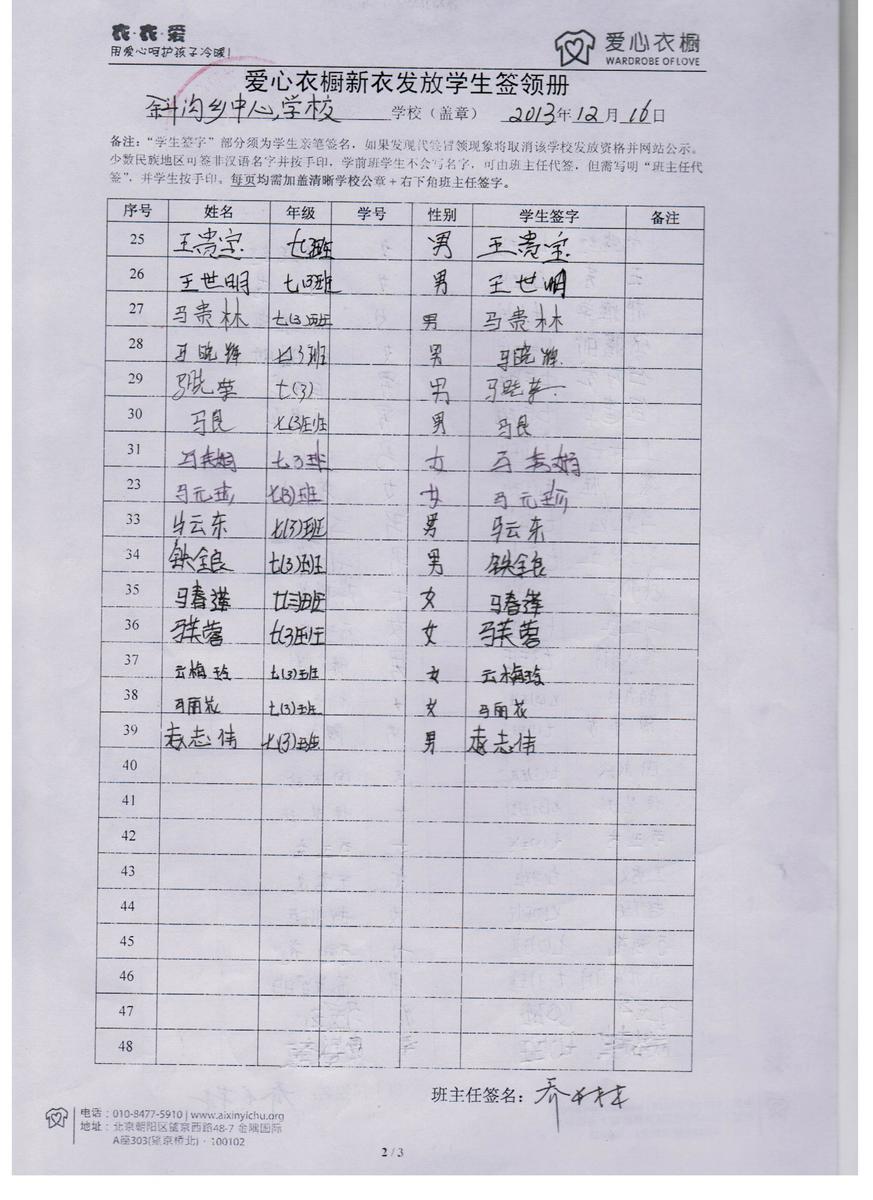 衣·衣·爱
用爱心呵护孩子冷暖!
爱心衣橱
WARDROBE OF LOVE
爱心衣橱新衣发放学生签领册
斜沟乡中心学校 学校（盖章） 2013年12月16日
备注："学生签字"部分须为学生亲笔签名，如果发现代签冒领现象将取消该学校发放资格并网站公示。
少数民族地区可签非汉语名字并按手印，学前班学生不会写名字，可由班主任代签，但需写明"班主任代
签"，并学生按手印。每页均需加盖清晰学校公章+右下角班主任签字。
序号 姓名 年级 学号 性别 学生签字 备注
25 王贵宝 七3班 男 王贵宝
26 王世明 七(3)班 男 王世明
27 马贵林 七(3)班 男 马贵林
28 马晓辉 七3班 男 马晓辉
29 七(3) 男
30 马良 七(3)班 男 马良
31 马秀娟 七3班 女 马秀娟
23 马元珍 七(3)班 女 马元珍
33 马云东 七(3)班 男 马云东
34 铁全良 七(3)班 男 铁全良
35 马春莲 七三班 女 马春莲
36 马芙蓉 七(3)班 女 马芙蓉
37 云梅玲 七(3)班 女 云梅玲
38 马丽花 七(3)班 女 马丽花
39 袁志伟 七(3)班 男 袁志伟
40
41
42
43
44
45
46
47
48
班主任签名：乔
电话：010-8477-5910 | www.aixinyichu.org
地址：北京朝阳区望京西路48-7 金隅国际
A座303(望京桥北)·100102
2 / 3